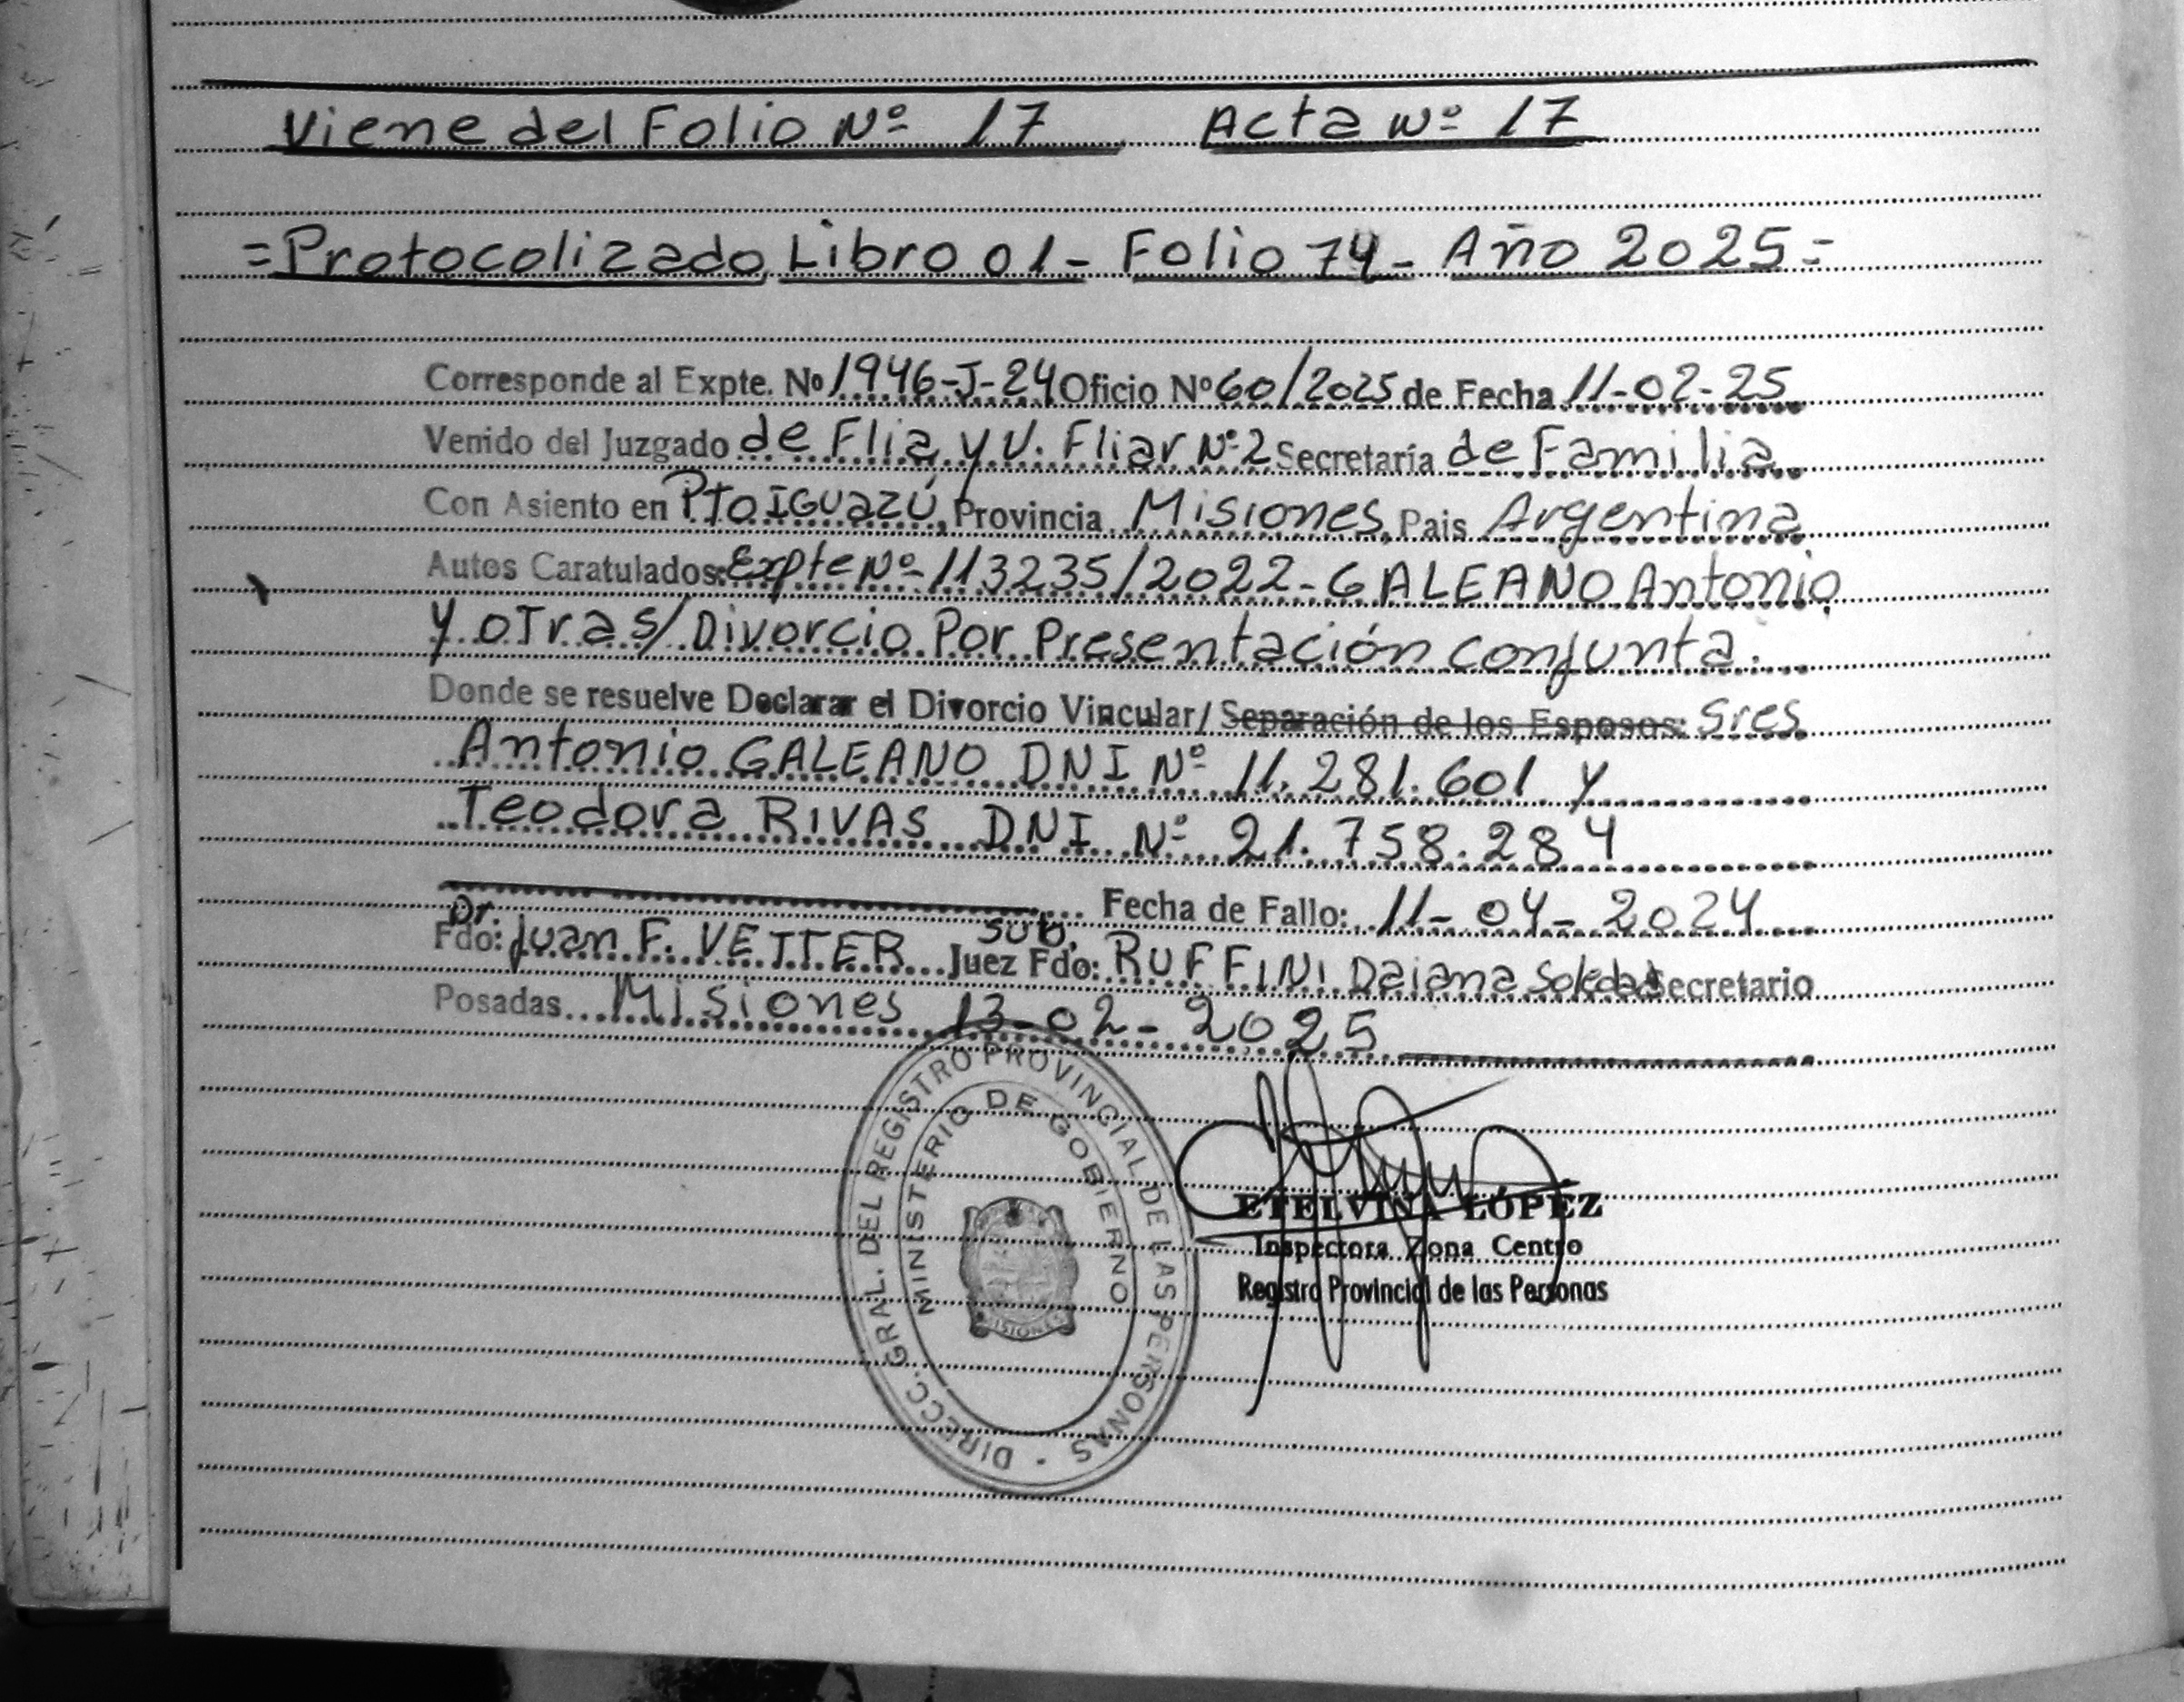 Viene del Folio Nº 17 Acta Nº 17
=Protocolizado Libro 01- Folio 74- Año 2025=
Corresponde al Expte. Nº 1946-J-24 Oficio Nº 60/2025 de Fecha 11-02-25
Venido del Juzgado de Flia y V. Fliar Nº 2 Secretaría de Familia
Con Asiento en Pto IGUAZÚ, Provincia Misiones, Pais Argentina
Autos Caratulados: Expte Nº 113235/2022- GALEANO Antonio
y otra s/ Divorcio Por Presentación conjunta.
Donde se resuelve Declarar el Divorcio Vincular/ Separación de los Esposos: Sres
Antonio GALEANO DNI Nº 11.281.601 y
Teodora RIVAS DNI Nº 21.758.284
Fecha de Fallo: 11-04-2024
Fdo: Dr. Juan F. VETTER Juez Fdo: Sub. RUFFINI Daiana Soledad Secretario
Posadas Misiones 13-02-2025
DIRECC. GRAL. DEL REGISTRO PROVINCIAL DE LAS PERSONAS
MINISTERIO DE GOBIERNO
MISIONES
ETELVINA LÓPEZ
Inspectora Zona Centro
Registro Provincial de las Personas